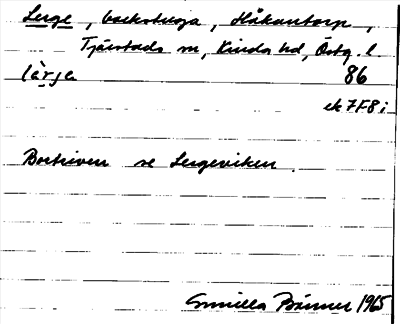 Lerge, backstuga, Håkantorp,
Tjärstads sn, Kinda hd, Östg. l
lärja 86
ek 7F8i
Beskriven se Lergeviken.
Gunilla Bänner 1965